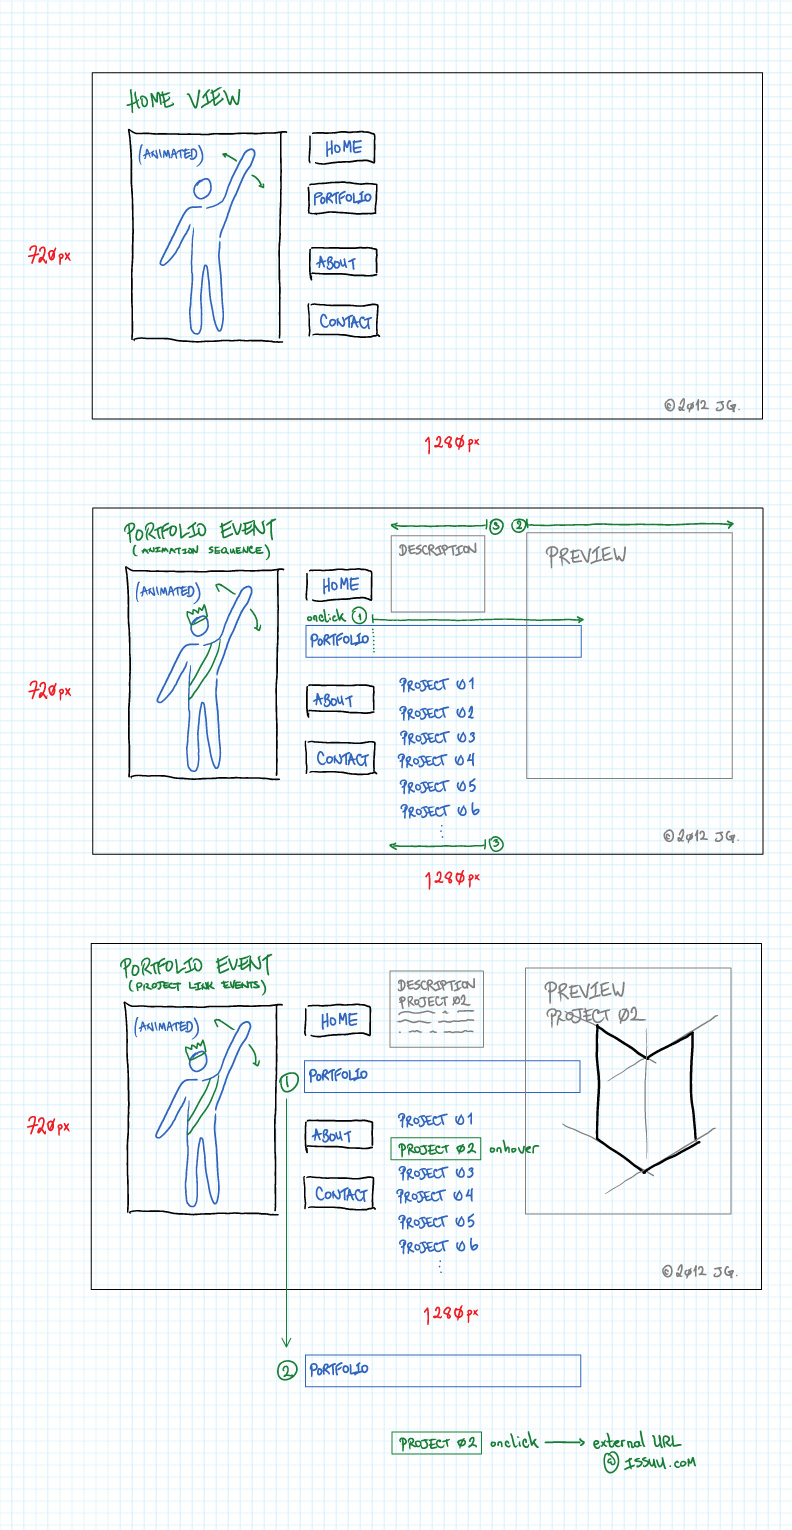 HOME VIEW
(ANIMATED)
HOME
PORTFOLIO
ABOUT
CONTACT
720px
©2012 JG.
1280px
PORTFOLIO EVENT
(ANIMATION SEQUENCE)
3
2
DESCRIPTION
PREVIEW
(ANIMATED)
HOME
onclick 1
PORTFOLIO
ABOUT
CONTACT
720px
PROJECT 01
PROJECT 02
PROJECT 03
PROJECT 04
PROJECT 05
PROJECT 06
3
©2012 JG.
1280px
PORTFOLIO EVENT
(PROJECT LINK EVENTS)
DESCRIPTION
PROJECT 02
PREVIEW
PROJECT 02
(ANIMATED)
HOME
1
PORTFOLIO
ABOUT
CONTACT
720px
PROJECT 01
PROJECT 02 onhover
PROJECT 03
PROJECT 04
PROJECT 05
PROJECT 06
©2012 JG.
1280px
2 PORTFOLIO
PROJECT 02 onclick → external URL
@ ISSUU.COM